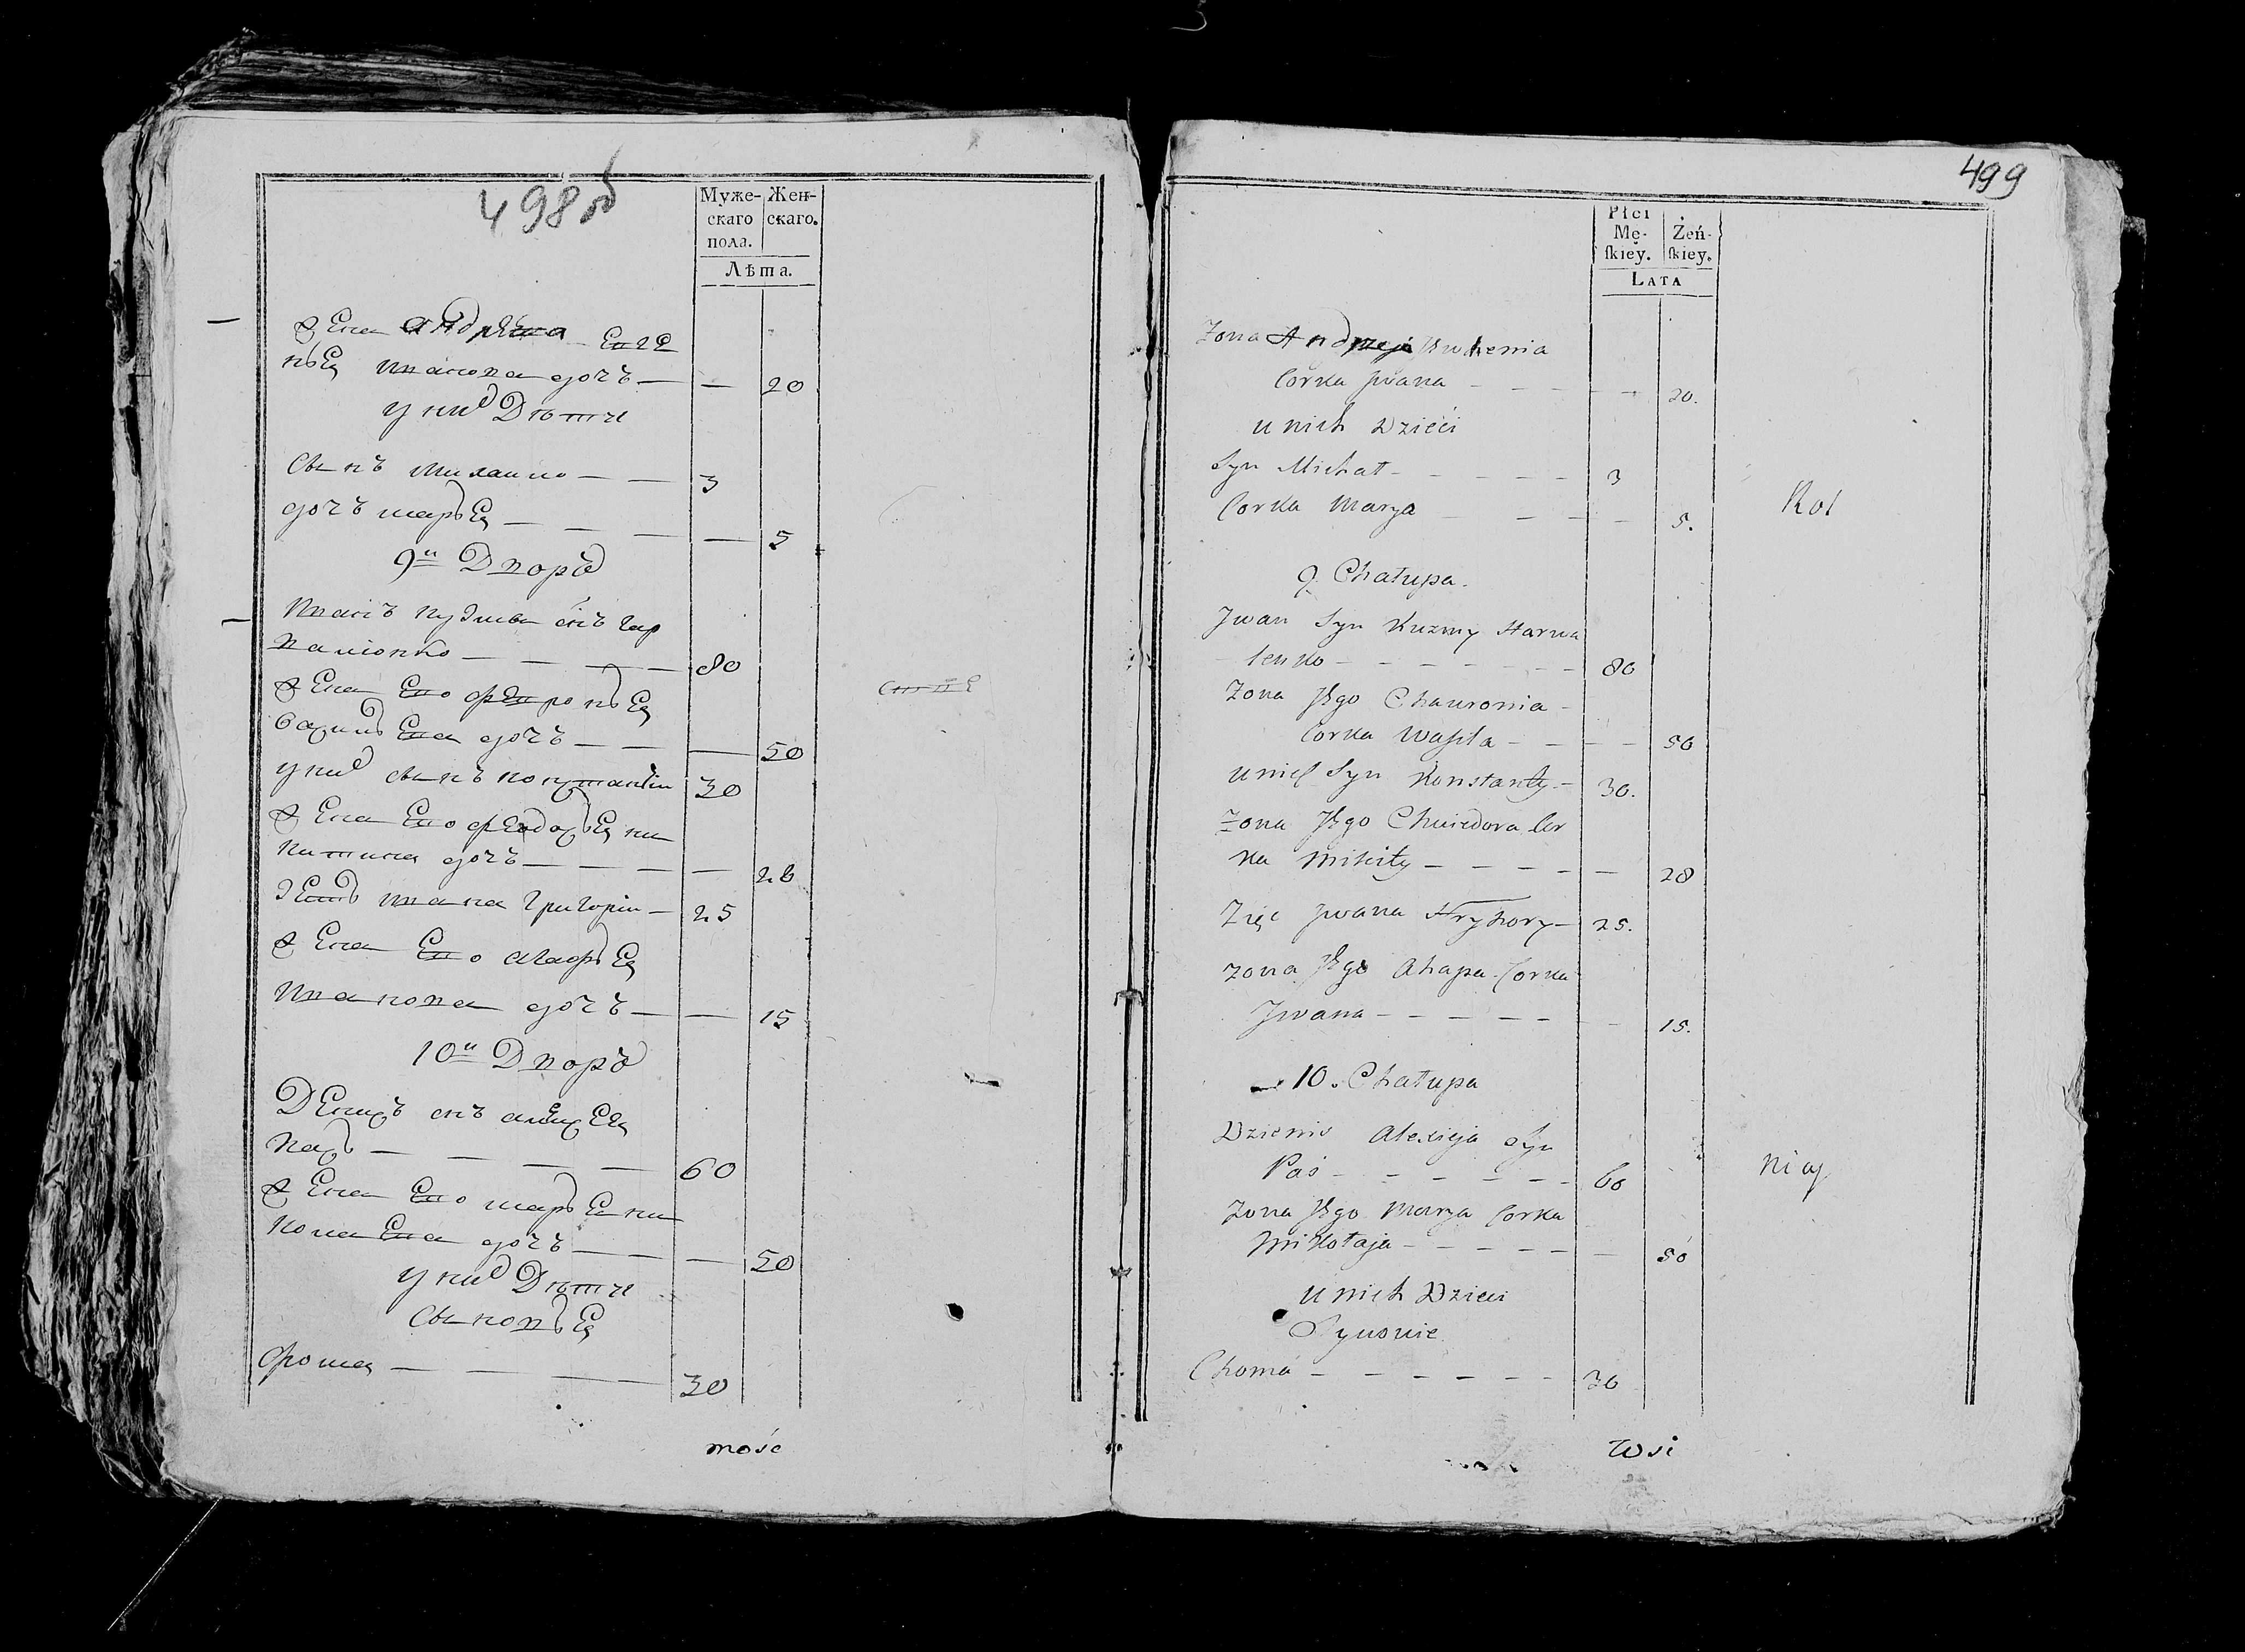 498об
Муже-
скаго
пола.
Жен-
скаго.
Лѣта.
жена андрѣна евге
нья иванова дочъ — — 20
у них Дѣти
сынъ михаило — — 3
дочъ марья — — — — 5
9й Дворъ
иванъ кузмы снъ гар
валіонко — — — — 80
жена ево февронья
васильева дочъ — — — 50
у них сынъ константiи 30
жена ево феодосья ни
китина дочъ — — — — 28
зеть ивана григорiи — 25
жена ево агафья
иванова дочъ — — 15
10й Дворъ
Денисъ снъ алексея
пась — — — — 60
жена ево марья ни
колаева дочъ — — — 50
у них Дѣти
сыновья
фома — — — — 30
mość
499
Płci
Mę-
ſkiey.
Żeń-
ſkiey.
LATA
Zona Andrzeja Jewhenia
Corka Jwana - - - - - 20.
u nich Dzieci
Syn Michał - - - - - - 3
Corka Marya - - - - 5.
9. Chałupa.
Jwan Syn Kuzmy Harwa
lenko - - - - - - - 80
Zona Jego Chawronia -
Corka Wasila - - - - 50
u nich Syn Konstanty - 30.
Zona Jego Chwiedora Cor
ka Mikity - - - - - 28
Zięć Jwana Hryhory - 25.
zona Jego Ahapa Corka
Jwana - - - - - - 15.
10. Chałupa
Dzienis Alexieja Syn
Paś - - - - - - 60
Zona Jego Marya Corka
Mikołaja - - - - - - 50
u nich Dzieci
Synowie
Choma - - - - - - 30
wsi